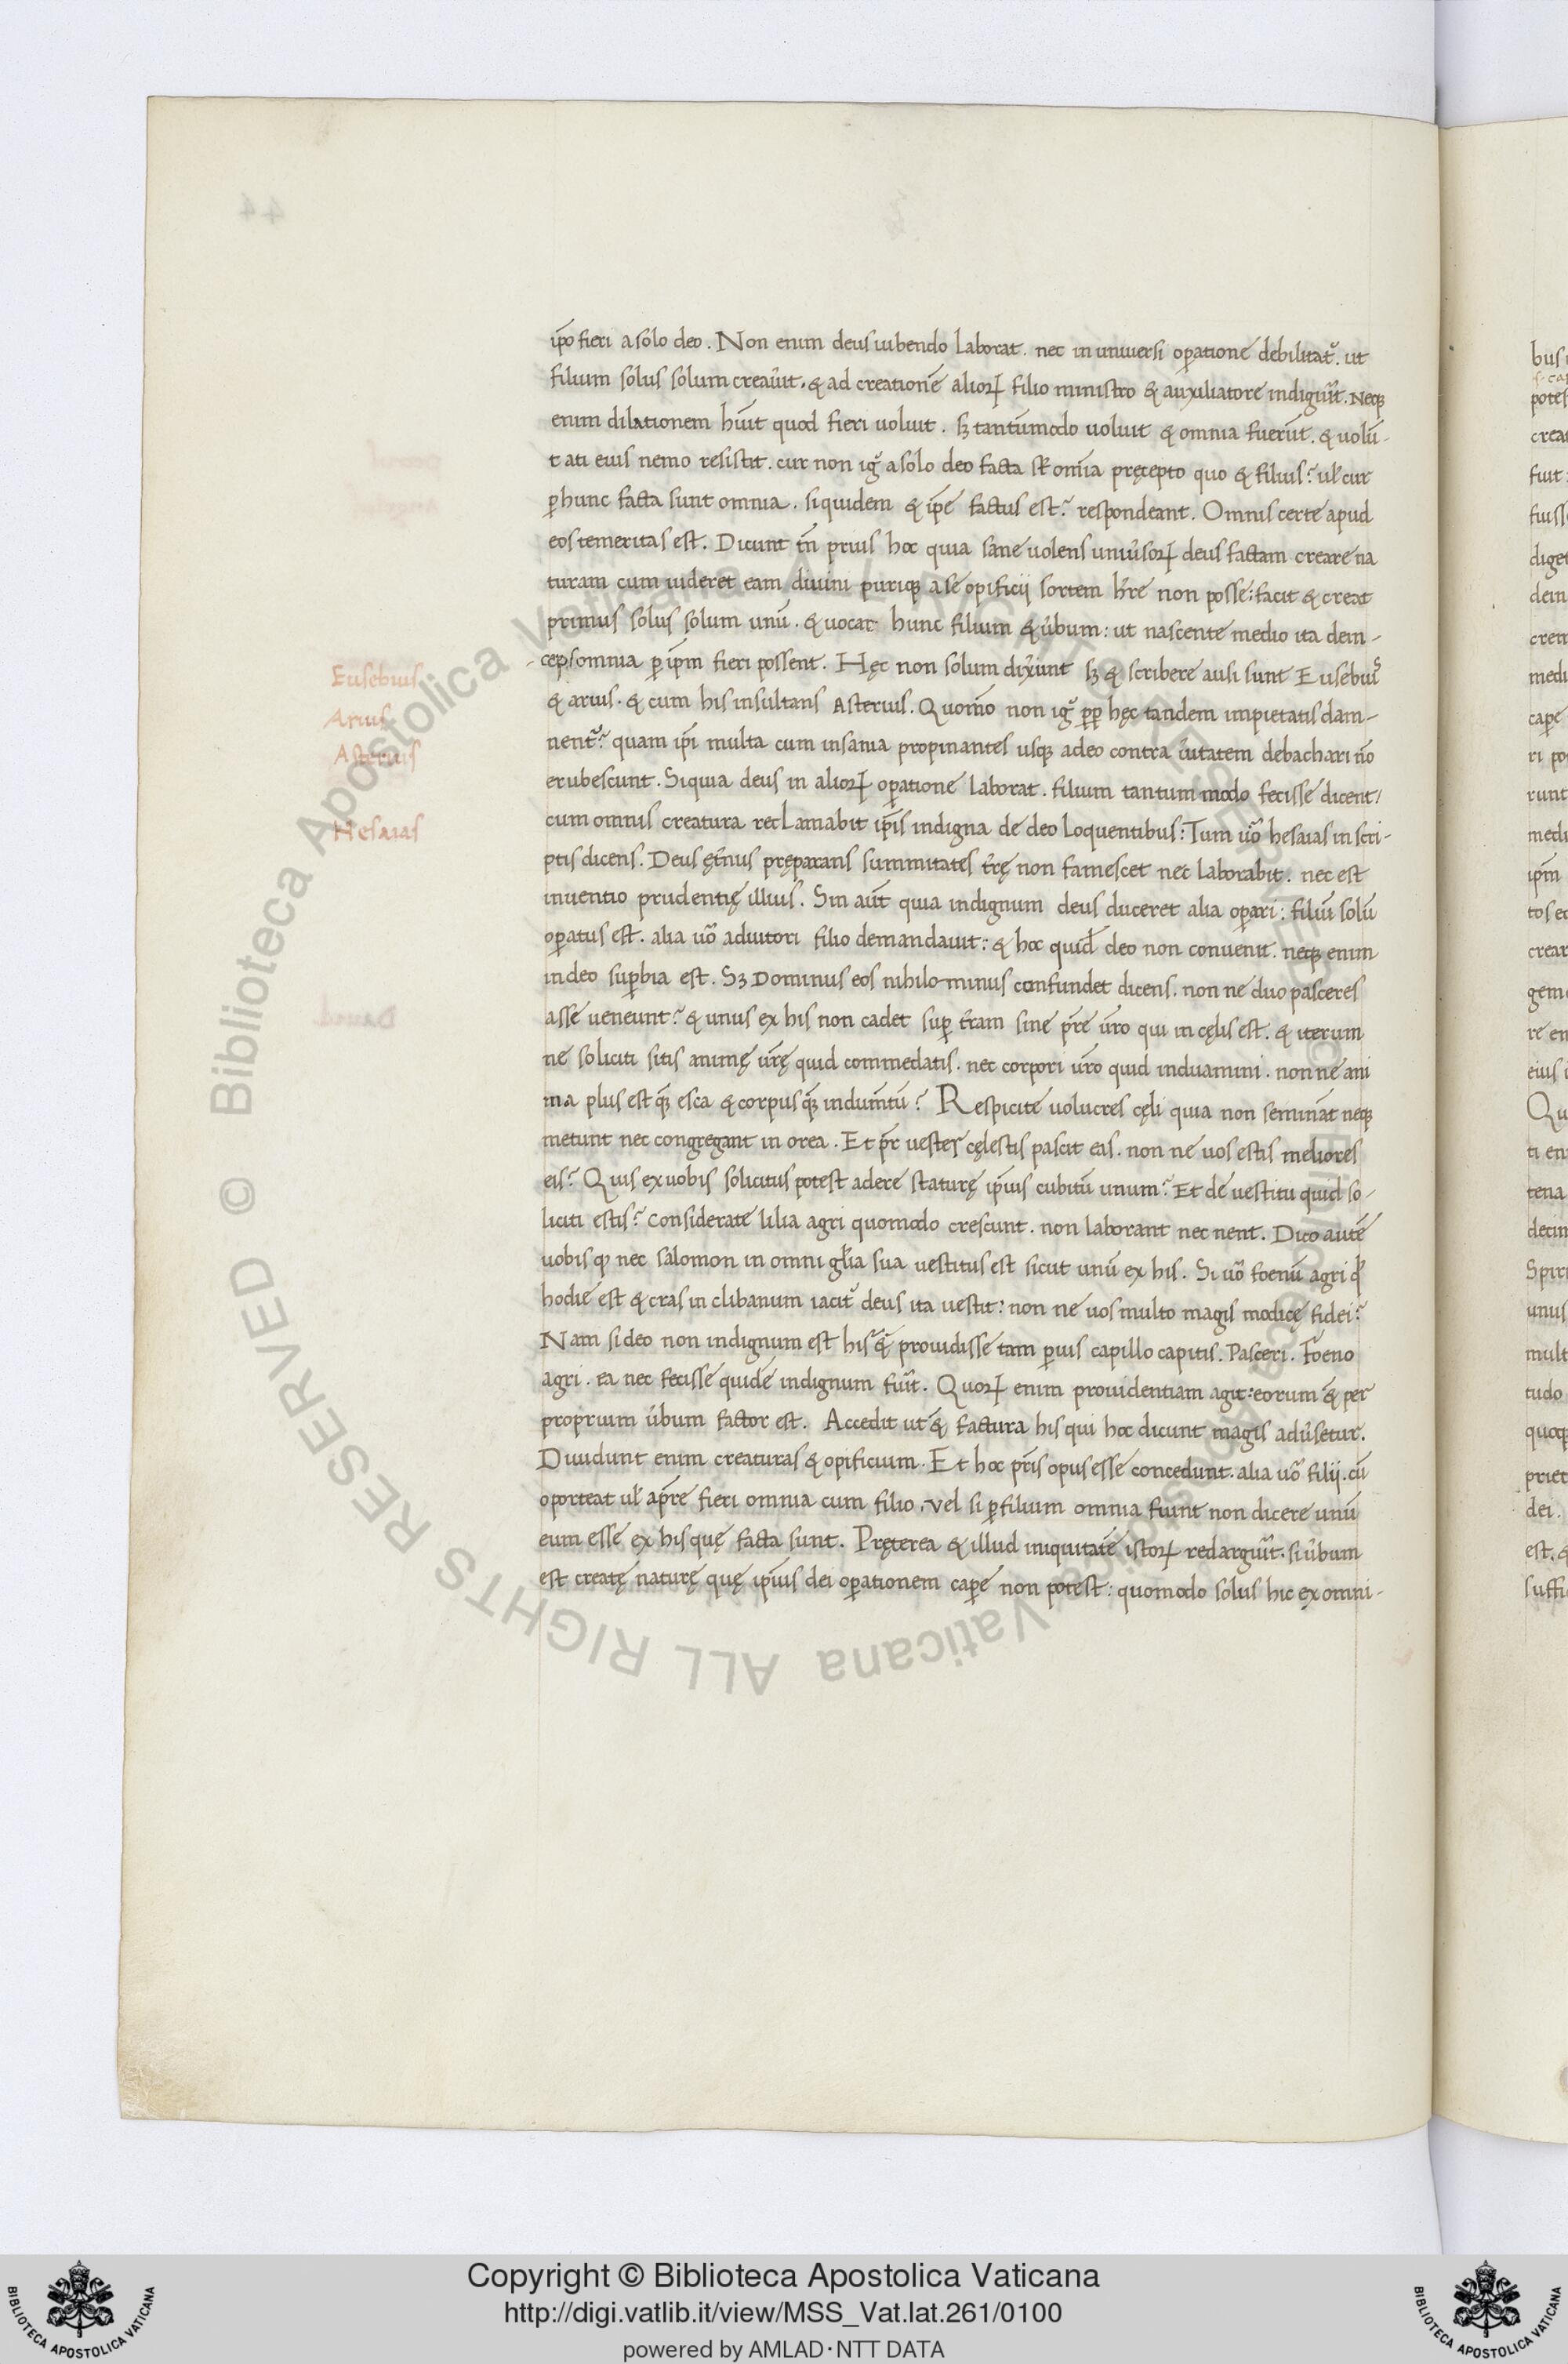 ip̄o fieri a solo deo. Non enim deus iubendo laborat. nec in uniuersi oꝑatione debilitat᷑. ut
filium solus solum creauit. & ad creationē alioꝝ filio ministro & auxiliatore indiguit̄. Neqꝫ
enim dilationem hūit quod fieri uoluit. sꝫ tantūmodo uoluit & omnia fuerūt. & uolū-
tati eius nemo resistit. cur non ig᷑ a solo deo facta st̄ omīa pręcepto quo & filius? ul̄ cur
ꝑ hunc facta sunt omnia. siquidem & ip̄e factus est? respondeant. Omnis certe apud
eos temeritas est. Dicunt tn̄ prius hoc quia sane uolens uniūsoꝝ deus factam creare na
turam cum uideret eam diuini puriqꝫ a se opificij sortem h̄re non posse: facit & creat
primus solus solum unū. & uocat hunc filium & ūbum: ut nascente medio ita dein-
ceps omnia ꝑ ip̄m fieri possent. Hęc non solum dix̄unt sꝫ & scribere ausi sunt Eusebius
& arius. & cum his insultans Asterius. Quom̄o non ig᷑ ꝓꝑ hęc tandem impietatis dam-
nent᷑? quam ip̄i multa cum insania propinantes usqꝫ adeo contra ūitatem debachari nō
erubescunt. Si quia deus in alioꝝ oꝑatione laborat. filium tantummodo fecisse dicent/
cum omnis creatura reclamabit ip̄is indigna de deo loquentibus: Tum uō hesaias in scri-
ptis dicens. Deus ęt̄nus pręparans summitates t̄rę non famescet nec laborabit. nec est
inuentio prudentię illius. Sin aūt quia indignum deus duceret alia oꝑari: filiū solū
oꝑatus est. alia uō adiutori filio demandauit: & hoc quid̄ deo non conuenit. neqꝫ enim
in deo suꝑbia est. Sꝫ Dominus eos nihilominus confundet dicens. non ne duo passeres
asse ueneunt? & unus ex his non cadet suꝑ t̄ram sine pr̄e ur̄o qui in cęlis est. & iterum
ne soliciti sitis animę ur̄ę quid commedatis. nec corpori ur̄o quid induamini. non ne ani
ma plus est q̄ꝫ esca & corpus q̄ꝫ indum̄tū? Respicite uolucres cęli quia non semināt neqꝫ
metunt nec congregant in orea. Et pr̄ uester cęlestis pascit eas. non ne uos estis meliores
eis? Quis ex uobis solicitus potest adere staturę ip̄ius cubitū unum? Et de uestitu quid so-
liciti estis? Considerate lilia agri quomodo crescunt. non laborant nec nent. Dico autē
uobis ꝙ nec salomon in omni gl̄ia sua uestitus est sicut unū ex his. Si uō foenū agri qd̄
hodie est & cras in clibanum iacit᷑ deus ita uestit: non ne uos multo magis modicę fidei?
Nam si deo non indignum est his q̄ꝫ prouidisse tam ꝑuis capillo capitis. Passeri. Foeno
agri. ea nec fecisse quidē indignum fuit̄. Quoꝝ enim prouidentiam agit: eorum & per
proprium ūbum factor est. Accedit ut & factura his qui hoc dicunt magis adūsetur.
Diuidunt enim creaturas & opificium. Et hoc pr̄is opus esse concedunt. alia uō filij. cū
oporteat ul̄ a pr̄e fieri omnia cum filio. vel si ꝑ filium omnia fiunt non dicere unū
eum esse ex his quę facta sunt. Pręterea & illud iniquitatē istoꝝ redarguit̄. si ūbum
est creatę naturę quę ip̄ius dei oꝑationem caꝑe non potest: quomodo solus hic ex omni-
Eusebius
Arius
Asterius
Hesaias
Copyright © Biblioteca Apostolica Vaticana
http://digi.vatlib.it/view/MSS_Vat.lat.261/0100
powered by AMLAD·NTT DATA
BIBLIOTECA APOSTOLICA VATICANA
BIBLIOTECA APOSTOLICA VATICANA
© Biblioteca Apostolica Vaticana ALL RIGHTS RESERVED
© Biblioteca Apostolica Vaticana ALL RIGHTS RESERVED